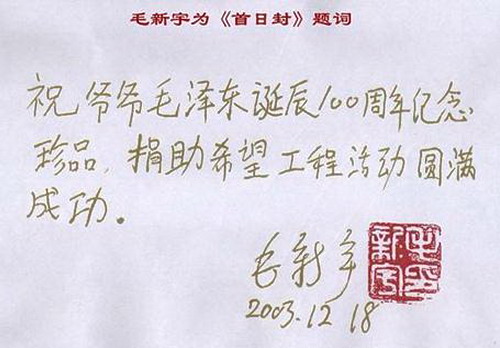 毛新宇为《首日封》题词
祝爷爷毛泽东诞辰100周年纪念
珍品，捐助希望工程活动圆满
成功。
毛新宇
毛新宇印
2003.12.18